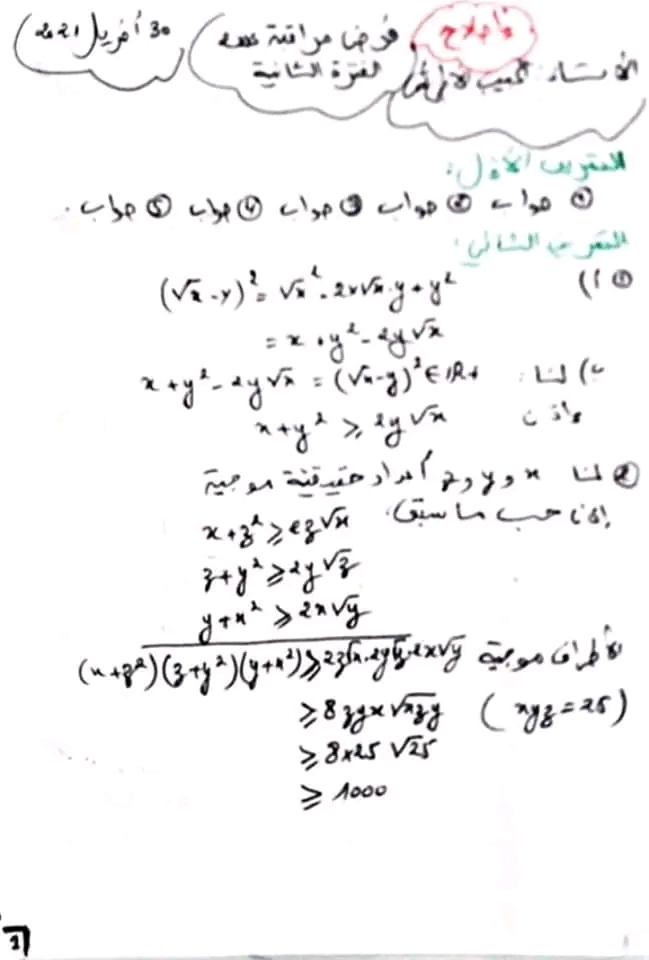 30 أفريل 2021
فرض مراقبة عدد
الفترة الثانية
إصلاح
الأستاذ:
التمرين الأول:
① جواب ② جواب ③ جواب ④ جواب ⑤ جواب
التمرين الثاني:
① أ) (√x - y)² = √x² - 2x√x.y + y²
= x + y² - 2y√x
ب) لنا: x + y² - 2y√x = (√x - y)² ∈ IR+
وإذن x + y² ⩾ 2y√x
② لنا x و y و z أعداد حقيقية موجبة
إذن حسب ما سبق:
x + z² ⩾ 2z√x
z + y² ⩾ 2y√z
y + x² ⩾ 2x√y
الأطراف موجبة (x+z²)(z+y²)(y+x²) ⩾ 2z√x.2y√z.2x√y
⩾ 8zyx√xzy (xyz = 25)
⩾ 8x25 √25
⩾ 1000
1